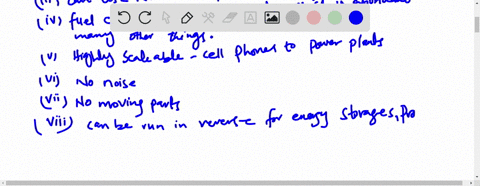 (iv) fuel c
many other things.
(v) Highly Scaleable - cell phones to power plants
(vi) No noise
(vii) No moving parts
(viii) can be run in reverse for energy storages, Pro